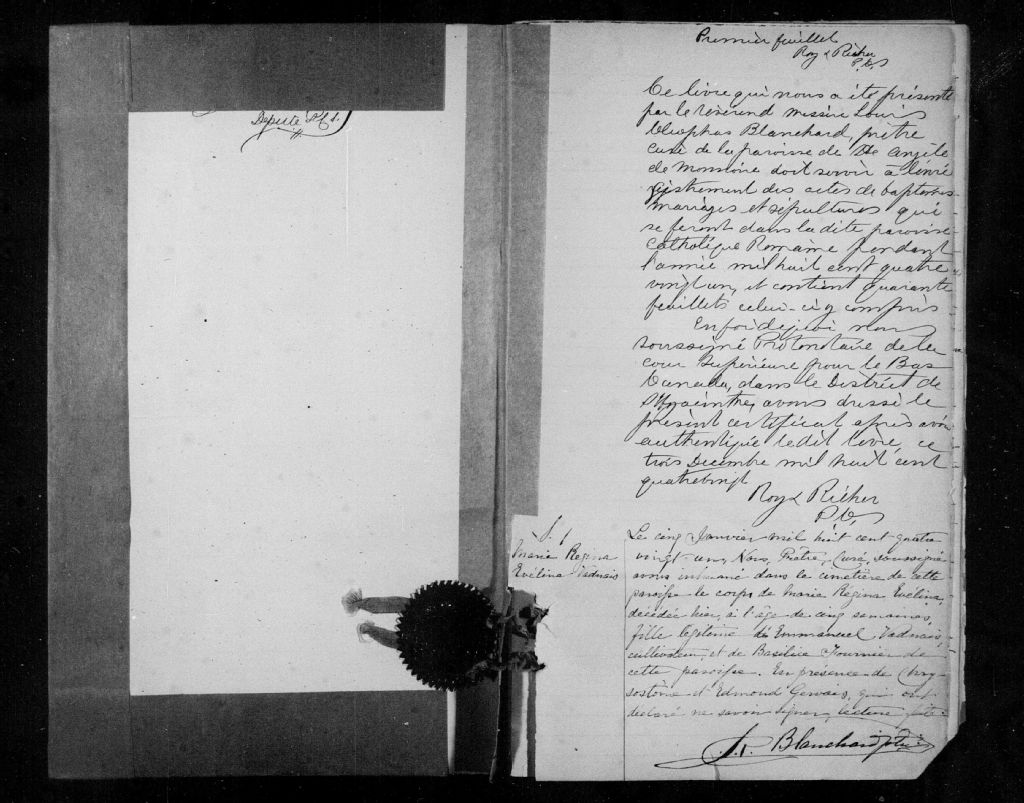 Député P.C.S.
Premier feuillet
Roy & Richer
P.C.S
Ce livre qui nous a été présenté
par le révérend messire Louis
Cléophas Blanchard, prêtre
curé de la paroisse de Ste Angèle
de Monnoire doit servir à l'enre
gistrement des actes de baptêmes
mariages et sépultures qui
se feront dans la dite paroisse
Catholique Romaine pendant
l'année mil huit cent quatre
vingt un, et contient quarante
feuillets celui-ci y compris
En foi de quoi nous
soussigné Protonotaire de la
cour Supérieure pour le Bas
Canada, dans le District de
St Hyacinthe, avons dressé le
présent certificat après avoir
authentiqué le dit livre, ce
trois Decembre mil huit cent
quatrevingt
Roy & Richer
P.C.S
S. 1
Marie Regina
Evélina Vadnais
Le cinq Janvier mil huit cent quatre
vingt un, Nous, Prêtre, Curé, soussigné
avons inhumé dans le cimetière de cette
paroisse le corps de Marie Régina Evélina,
décédée hier, à l'âge de cinq semaines,
fille légitime d'Emmanuel Vadnais,
cultivateur, et de Basilice Fournier de
cette paroisse. En présence de Chry
sostôme et Edmond Gervais, qui ont
déclaré ne savoir signer, lecture faite.
Blanchard ptre